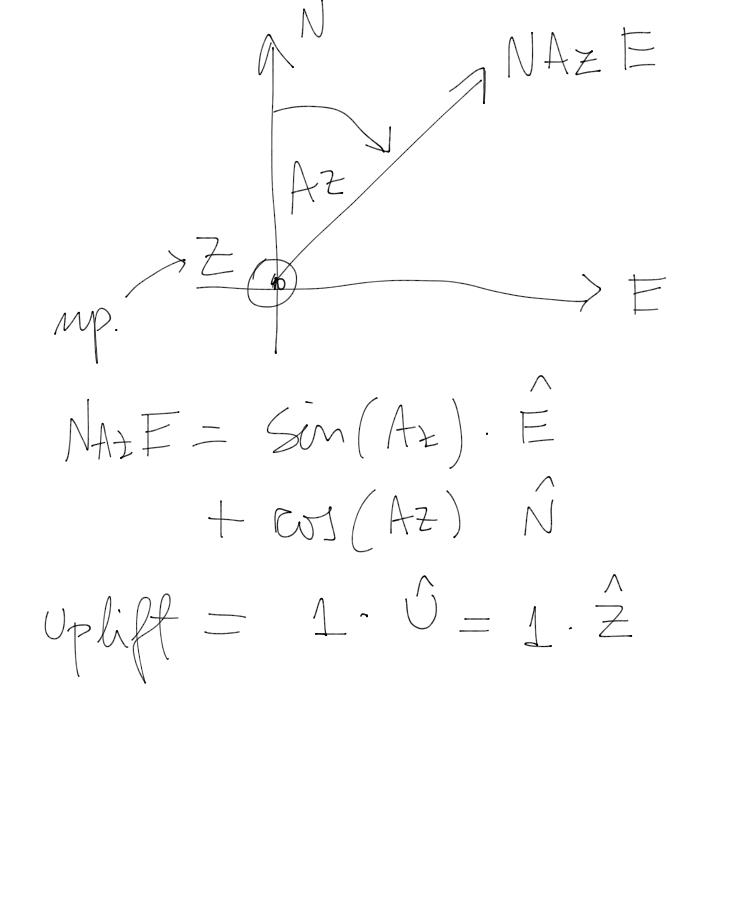 N
NAzE
Az
Z
up.
E
NAzE = sin(Az) · Ê
+ cos(Az) N̂
Uplift = 1 · Û = 1 · Ẑ